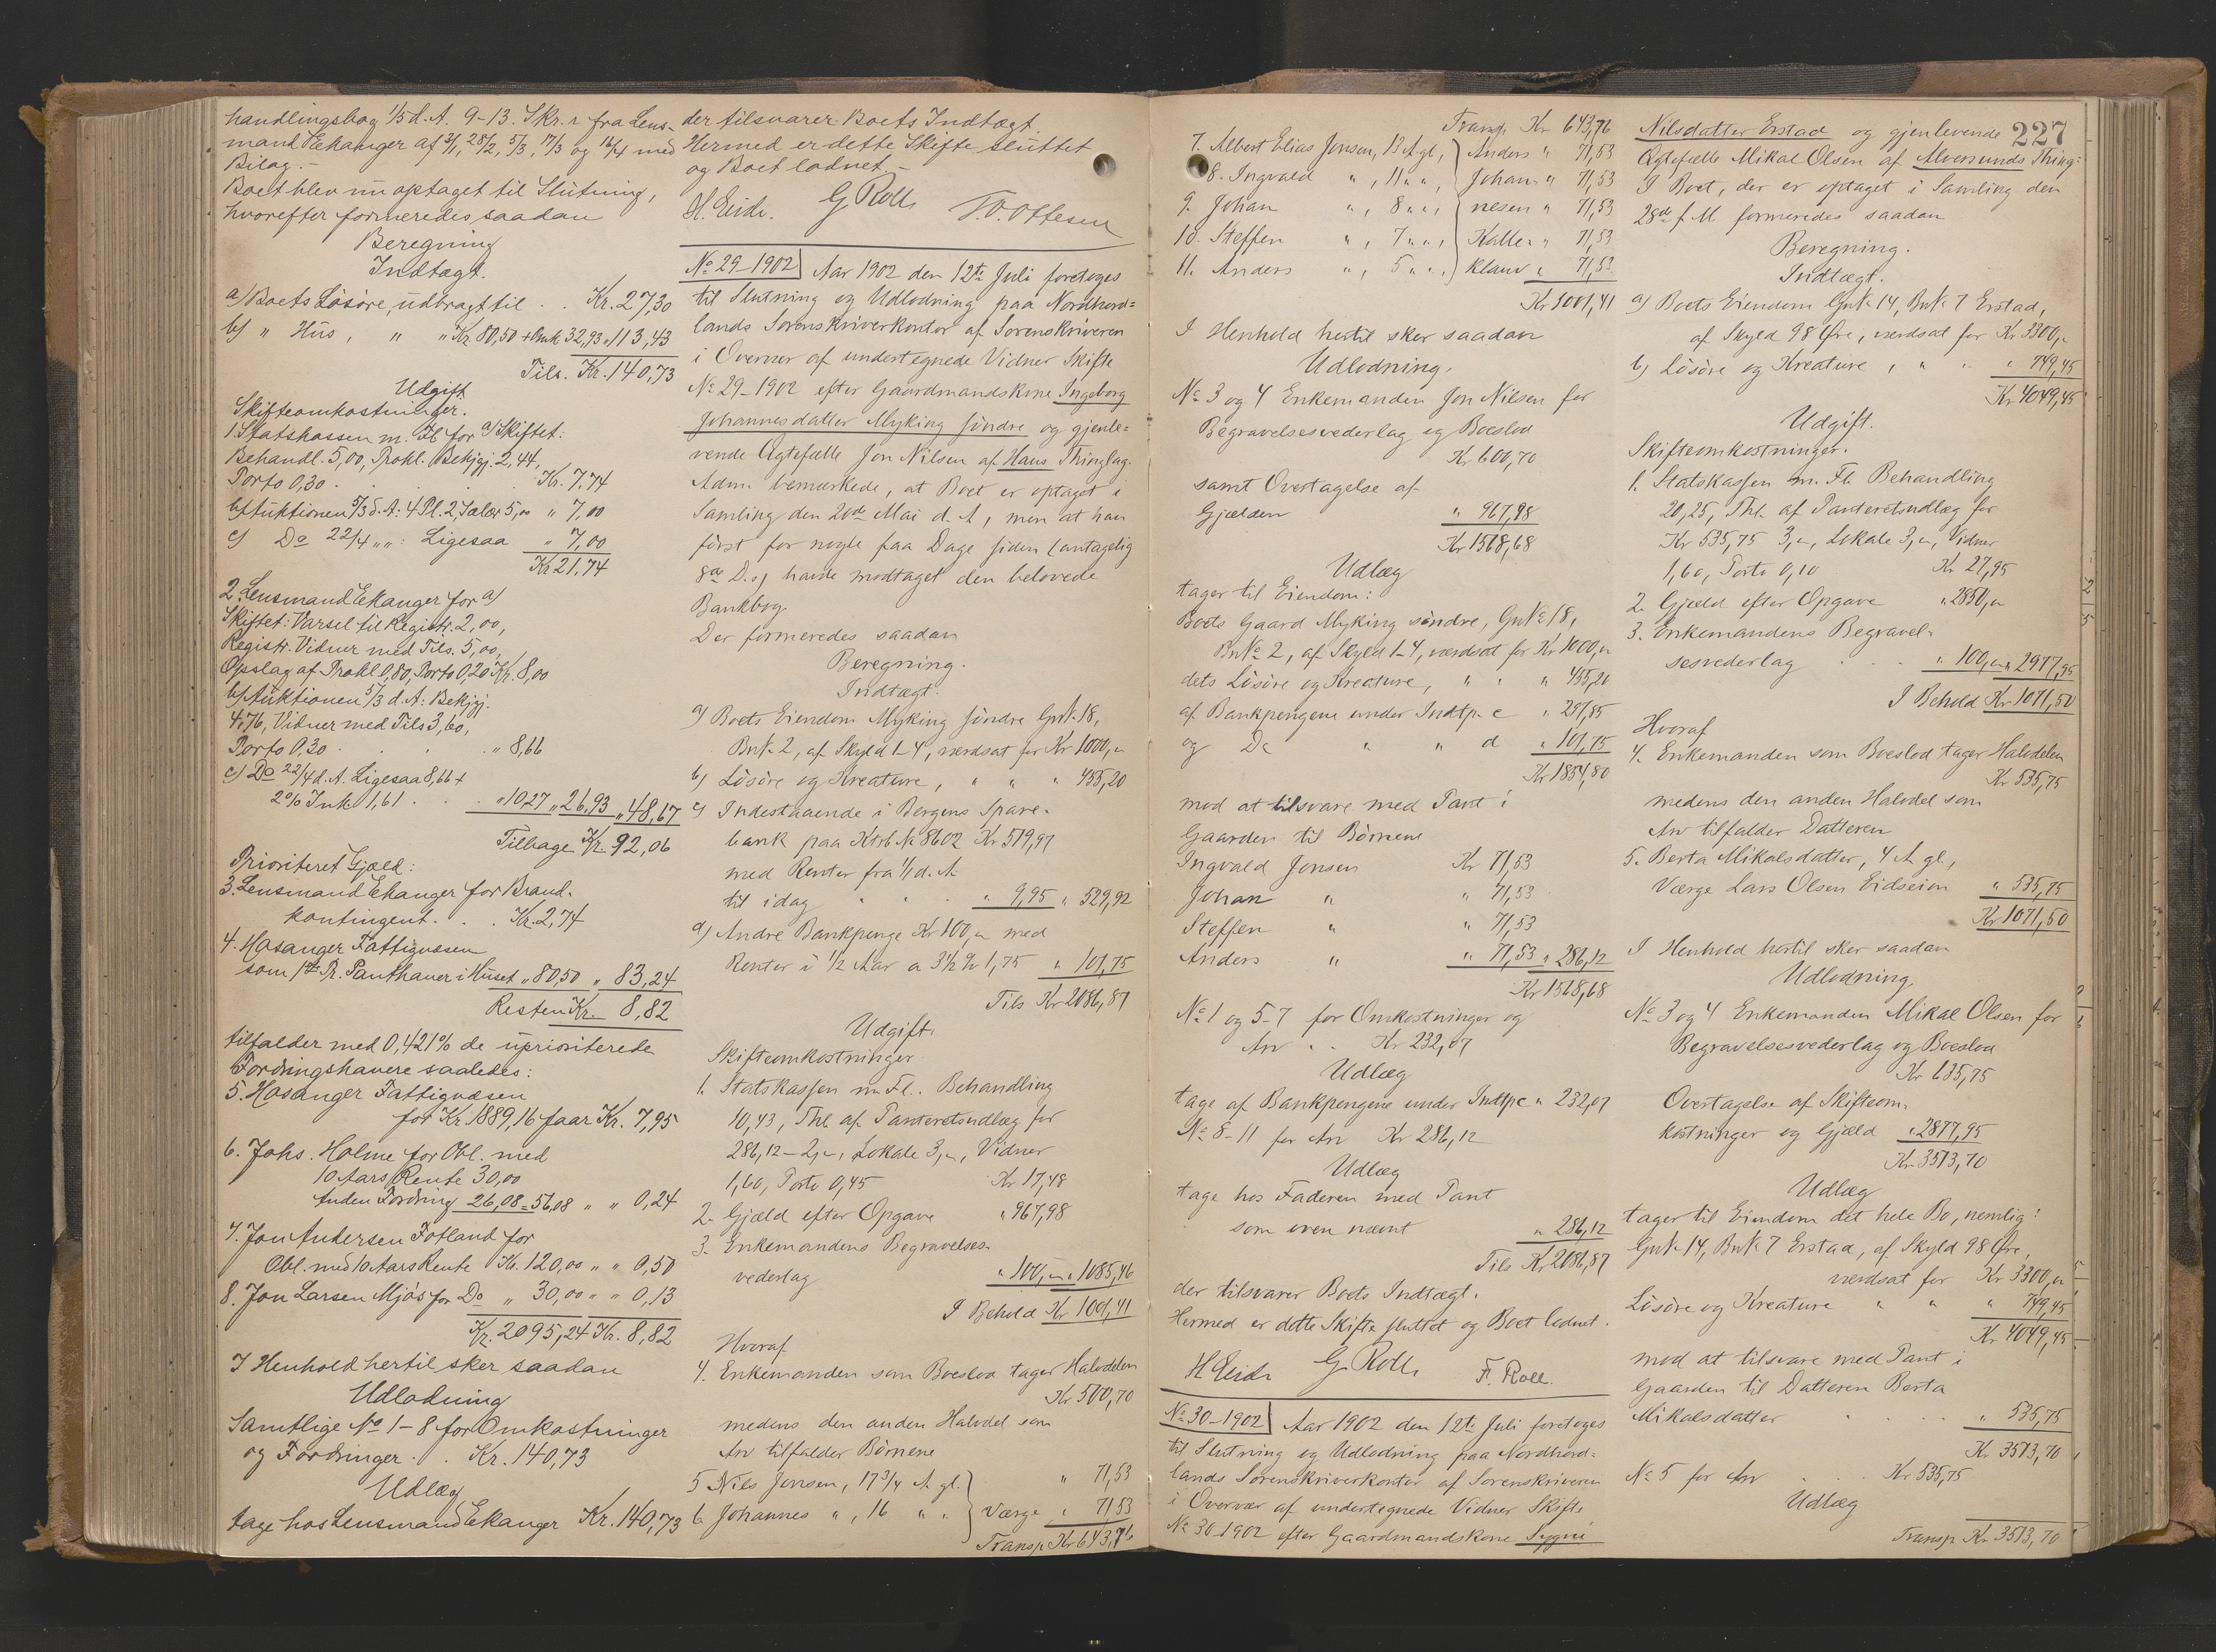 handlingsbog 1/5 d. A. 9-13. Skr. r fra Lens-
mand Ekanger af 3/1, 28/2, 5/3, 17/3 og 16/4 med
Bilag. -
Boet blev nu optaget til Slutning,
hvorefter formeredes saadan
Beregning
Indtægt.
a) Boets Løsøre, udbragt til . . Kr. 27,30
b) " Hus, " " Kr. 80,50 + 32,93 " 113,43
Tils. Kr. 140,73
Udgift
Skifteomkostninger.
1. Statskassen m. Fl. for a) Skiftet:
Behandl. 5,00, Prokl. Bekjgj. 2,44,
Porto 0,30 . . . Kr. 7,74
b) Auktionen 5/3 d. A: 4 Pl. 2, Salær 5,00 " 7,00
c) Do 22/4 " " : Ligesaa " 7,00
Kr 21,74
2. Lensmand Ekanger for a)
Skiftet: Varsel til Registr. 2,00,
Registr. Vidner med Tils. 5,00,
Opslag af Prokl 0,80, Porto 0,20 Kr. 8,00
b) Auktionen 5/3 d. A: Bekjgj.
4,76, Vidner med Tils 3,60,
Porto 0,30 . . . " 8,66
c) Do 22/4 d. A. Ligesaa 8,66 +
2% Ink 1,61 . . . " 10,27 " 26,93 " 48,67
Tilbage Kr. 92,06
Prioriteret Gjæld:
3. Lensmand Ekanger for Brand-
kontingent . . . Kr. 2,74
4. Hosanger Fattigvæsen
som 1ste Pr. Panthaver i Huset " 80,50 " 83,24
Resten Kr. 8,82
tilfalder med 0,421% de uprioriterede
Fordringshavere saaledes:
5. Hosanger Fattigvæsen
for Kr 1889,16 faar Kr. 7,95
6. Johs. Holme for Obl. med
10 Aars Rente 30,00
Anden Fordring 26,08 = 56,08 " " 0,24
7. Jon Andersen Fotland for
Obl. med 10 Aars Rente Kr. 120,00 " " 0,50
8. Jon Larsen Mjøs for Do " 30,00 " " 0,13
Kr. 2095,24 Kr. 8,82
I Henhold hertil sker saadan
Udlodning
Samtlige No 1-8 for Omkostninger
og Fordringer . . Kr. 140,73
Udlæg
tage hos Lensmand Ekanger Kr. 140,73
der tilsvarer Boets Indtægt.
Hermed er dette Skifte sluttet
og Boet lodnet. -
H. Eide. G Roll T. O. Ottesen
No 29-1902 Aar 1902 den 12te Juli foretoges
til Slutning og Udlodning paa Nordhord=
lands Sorenskriverkontor af Sorenskriveren
i Overvær af undertegnede Vidner Skifte
No 29-1902 efter Gaardmandskone Ingeborg
Johannesdatter Myking søndre og gjenle=
vende Ægtefælle Jon Nilsen af Haus Thinglag.
Adm. bemærkede, at Boet er optaget i
Samling den 20de Mai d. A, men at han
først for nogle faa Dage siden (antagelig
8de D.s) havde modtaget den belovede
Bankbog.
Der formeredes saadan
Beregning.
Indtægt.
a) Boets Eiendom Myking søndre Gnr. 18,
Bnr. 2, af Skyld 1-4, værdsat for Kr 1000,"
b) Løsøre og Kreature, " " " 455,20
c) Indestaaende i Bergens Spare-
bank paa Ktrb No 8602 Kr 519,97
med Renter fra 1/1 d. A
til idag . . . " 9,95 " 529,92
d) Andre Bankpenge Kr 100," med
Renter i 1/2 Aar a 3½ % 1,75 " 101,75
Tils Kr 2086,87
Udgift.
Skifteomkostninger
1. Statskassen m Fl.. Behandling
10,43, Thl. af Panteretsudlæg for
286,12 - 2,", Lokale 3,", Vidner
1,60, Porto 0,45 Kr 17,48
2. Gjæld efter Opgave " 967,98
3. Enkemandens Begravelses-
vederlag " 100," " 1085,46
I Behold Kr 1001,41
Hvoraf
4. Enkemanden som Boeslod tager Halvdelen
Kr 500,70
medens den anden Halvdel som
Arv tilfalder Børnene
5 Nils Jonsen, 17 3/4 A. gl. " 71,53
6. Johannes ", 16 " " Værge " 71,53
Transp Kr 643,76
Transp Kr 643,76
7. Albert Elias Jonsen, 13 A gl, Anders " 71,53
8. Ingvald " , 11 " ", Johan- " 71,53
9. Johan " , 8 " ", nesen " 71,53
10. Steffen " , 7 " ", Kalle- " 71,53
11. Anders " , 5 " ", klauv " 71,53
Kr 1001,41
I Henhold hertil sker saadan
Udlodning.
No 3 og 4 Enkemanden Jon Nilsen for
Begravelsesvederlag og Boeslod
Kr 600,70
samt Overtagelse af
Gjælden " 967,98
Kr 1568,68
Udlæg
tager til Eiendom:
Boets Gaard Myking søndre, Gnr. 18,
Bnr. 2, af Skyld 1-4, værdsat for Kr 1000,"
dets Løsøre og Kreature, " " " 455,20
af Bankpengene under Indtp. c " 297,85
og Do " " d " 101,75
Kr 1854,80
mod at tilsvare med Pant i
Gaarden til Børnene
Ingvald Jonsen Kr 71,53
Johan " " 71,53
Steffen " " 71,53
Anders " " 71,53 " 286,12
Kr 1568,68
No 1 og 5-7 for Omkostninger og
Arv . . Kr 232,07
Udlæg
tage af Bankpengene under Indtp c " 232,07
No 8-11 for Arv Kr 286,12
Udlæg
tage hos Faderen med Pant
som oven nævnt " 286,12
Tils Kr 2086,87
der tilsvarer Boets Indtægt.
Hermed er dette Skifte sluttet og Boet lodnet.
H Eide G. Roll F. Roll.
No 30-1902 Aar 1902 den 12te Juli foretoges
til Slutning og Udlodning paa Nordhord-
lands Sorenskriverkontor af Sorenskriveren
i Overvær af undertegnede Vidner Skifte
No 30-1902 efter Gaardmandskone
227
Nilsdatter Erstad og gjenlevende
Ægtefælle Mikal Olsen af Alversunds Thing=
I Boet, der er optaget i Samling den
28de f. M formeredes saadan
Beregning.
Indtægt.
a) Boets Eiendom Gnr. 14, Bnr. 7 Erstad,
af Skyld 98 Øre, værdsat for Kr 3300,"
b) Løsøre og Kreature, " " " 749,45
Kr 4049,45
Udgift.
Skifteomkostninger.
1. Statskassen m. Fl. Behandling
20,25, Thl. af Panteretsudlæg for
Kr 535,75 3,", Lokale 3,", Vidner
1,60, Porto 0,10 Kr 27,95
2. Gjæld efter Opgave " 2850,"
3. Enkemandens Begravel-
sesvederlag . . . " 100," " 2977,95
I Behold Kr 1071,50
Hvoraf
4. Enkemanden som Boeslod tager Halvdelen
Kr 535,75
medens den anden Halvdel som
Arv tilfalder Datteren
5. Berta Mikalsdatter, 4 A gl.,
Værge Lars Olsen Eidseim " 535,75
Kr 1071,50
I Henhold hertil sker saadan
Udlodning
No 3 og 4 Enkemanden Mikal Olsen for
Begravelsesvederlag og Boeslod
Kr 635,75
Overtagelse af Skifteom-
kostninger og Gjæld " 2877,95
Kr 3513,70
Udlæg
tager til Eiendom det hele Bo, nemlig:
Gnr. 14, Bnr. 7 Erstad, af Skyld 98 Øre,
værdsat for Kr 3300,"
Løsøre og Kreature " " " 749,45
Kr 4049,45
mod at tilsvare med Pant i
Gaarden til Datteren Berta
Mikalsdatter . . . " 535,75
Kr 3513,70
No 5 for Arv . . Kr 535,75
Udlæg
Transp Kr 3513,70